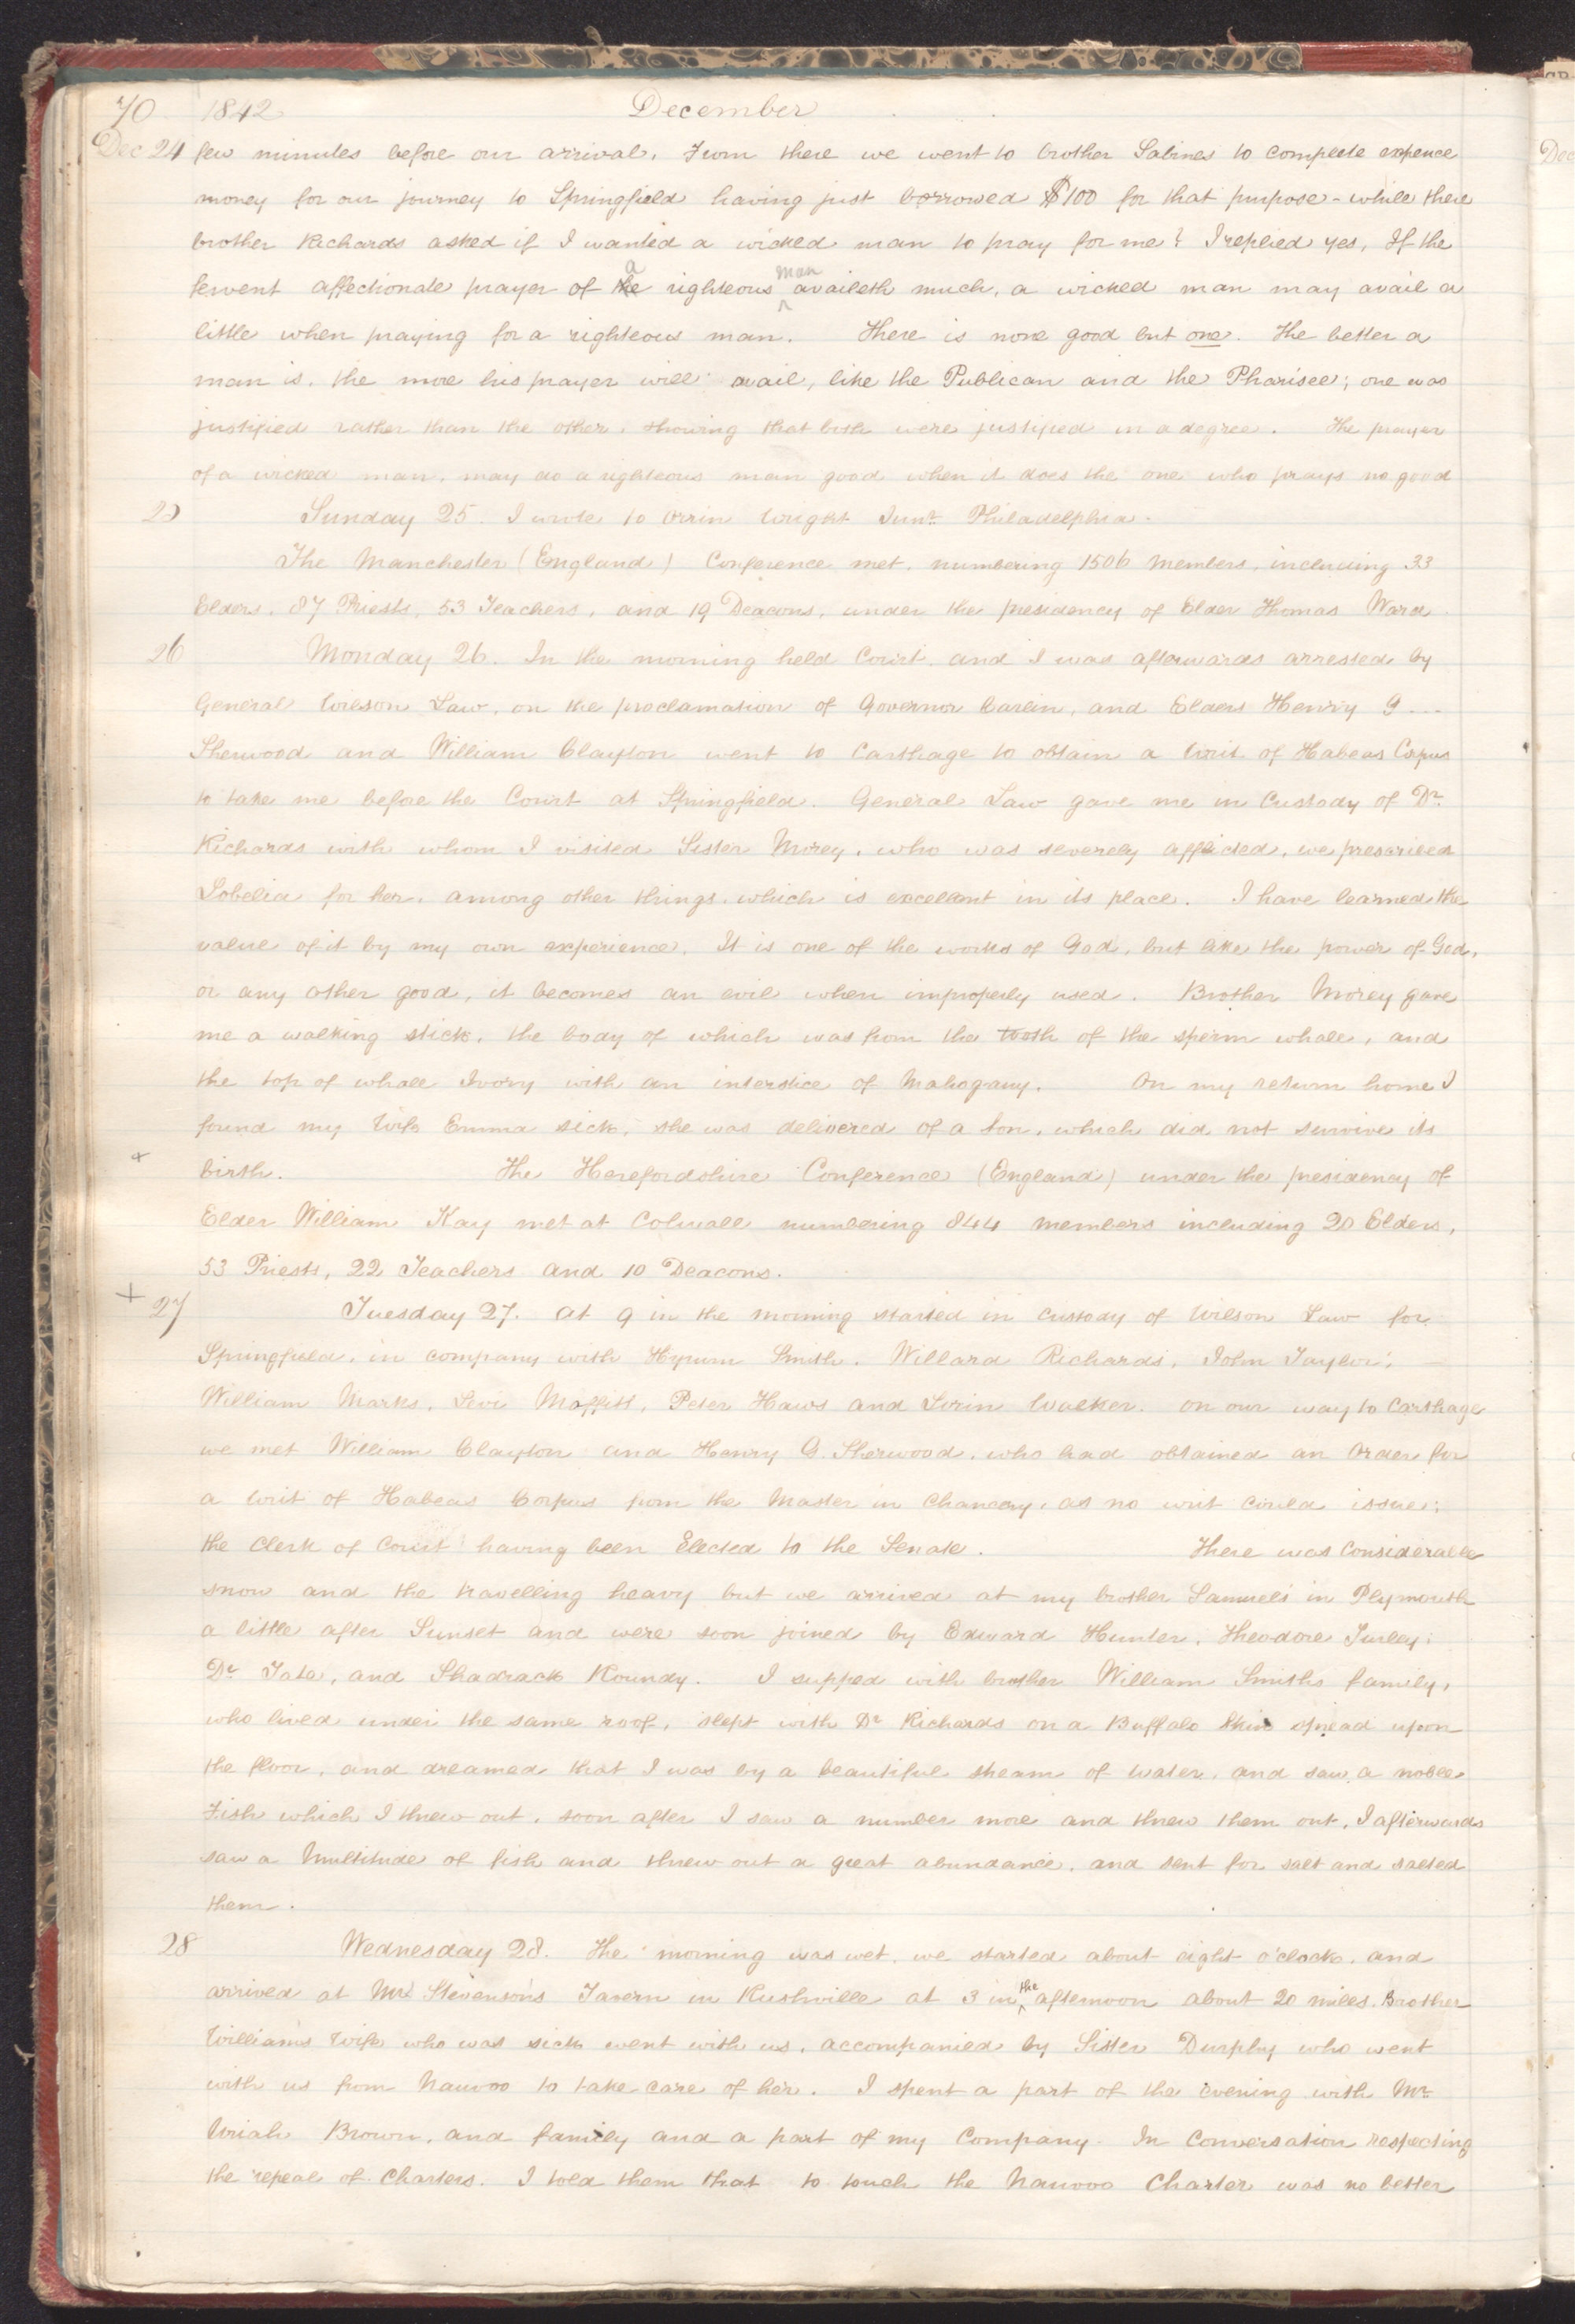 70 1842 December
Dec 24 few minutes before our arrival. From there we went to brother Sabines to complete expence
money for our journey to Springfield having just borrowed $100 for that purpose - while there
brother Richards asked if I wanted a wicked man to pray for me? I replied yes, If the
fervent affectionate prayer of the a righteous man availeth much, a wicked man may avail a
little when praying for a righteous man. There is none good but one. The better a
man is, the more his prayer will avail, like the Publican and the Pharisee; one was
justified rather than the other, showing that both were justified in a degree. The prayer
of a wicked man, may do a righteous man good when it does the one who prays no good
25 Sunday 25. I wrote to Orrin Wright Junr. Philadelphia.
The Manchester (England) Conference met, numbering 1506 members, including 33
Elders, 87 Priests, 53 Teachers, and 19 Deacons, under the presidency of Elder Thomas Ward
26 Monday 26. In the morning held Court, and I was afterwards arrested by
General Wilson Law, on the proclamation of Governor Carlin, and Elders Henry G --
Sherwood and William Clayton went to Carthage to obtain a Writ of Habeas Corpus
to take me before the Court at Springfield. General Law gave me in Custody of Dr.
Richards with whom I visited Sister Morey, who was severely afflicted, we prescribed
Lobelia for her, among other things, which is excellent in its place. I have learned the
value of it by my own experience. It is one of the works of God, but like the power of God,
or any other good, it becomes an evil when improperly used. Brother Morey gave
me a walking stick, the body of which was from the tooth of the sperm whale, and
the top of whale Ivory with an interstice of Mahogany. On my return home I
found my Wife Emma sick, she was delivered of a Son, which did not survive its
birth. The Herefordshire Conference (England) under the presidency of
Elder William Kay met at Colwall numbering 844 members including 20 Elders,
53 Priests, 22 Teachers and 10 Deacons.
+ 27 Tuesday 27. at 9 in the morning started in custody of Wilson Law for
Springfield, in company with Hyrum Smith, Willard Richards, John Taylor,
William Marks, Levi Moffitt, Peter Haws and Lorin Walker. on our way to Carthage
we met William Clayton and Henry G. Sherwood, who had obtained an Order for
a Writ of Habeas Corpus from the Master in Chancery, as no writ could issue;
the Clerk of Court having been Elected to the Senate. There was considerable
snow and the travelling heavy but we arrived at my brother Samuel's in Plymouth
a little after Sunset and were soon joined by Edward Hunter, Theodore Turley,
Dr Tate, and Shadrack Roundy. I supped with brother William Smiths family,
who lived under the same roof, slept with Dr Richards on a Buffalo Skin spread upon
the floor, and dreamed that I was by a beautiful stream of water, and saw a noble
Fish which I threw out. soon after I saw a number more and threw them out, I afterwards
saw a Multitude of fish and threw out a great abundance, and sent for salt and salted
them.
28 Wednesday 28. The morning was wet, we started about eight o'clock, and
arrived at Mr. Stevenson's Tavern in Rushville at 3 in the afternoon about 20 miles. Brother
William's Wife who was sick went with us, accompanied by Sister Durphy who went
with us from Nauvoo to take care of her. I spent a part of the evening with Mr.
Uriah Brown, and family and a part of my Company. In Conversation respecting
the repeal of Charters. I told them that to touch the Nauvoo Charter was no better
Dec